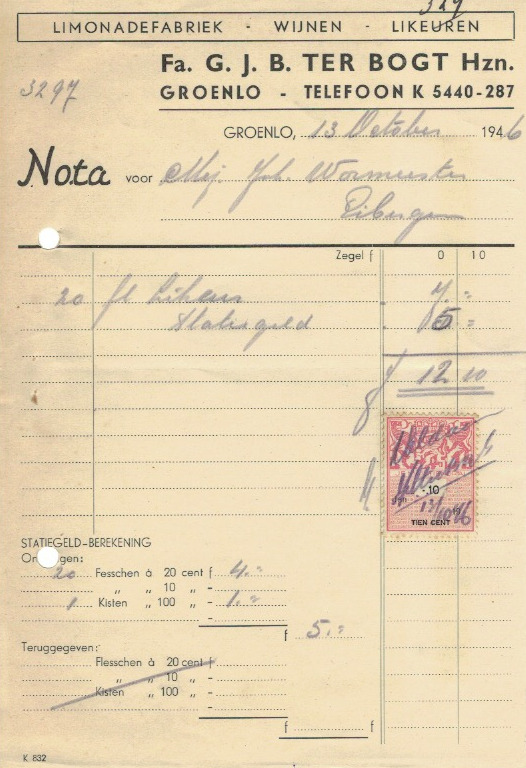 329
LIMONADEFABRIEK - WIJNEN - LIKEUREN
Fa. G. J. B. TER BOGT Hzn.
3297
GROENLO - TELEFOON K 5440-287
GROENLO, 13 October 1946
Nota voor Mej. Joh. Wormeester
Eibergen
Zegel f 0 10
20 fl 7.=
Statiegeld 5.=
f 12 10
-.10
13/10 46
TIEN CENT
STATIEGELD-BEREKENING
On gen:
20 Fesschen à 20 cent f 4.=
„ „ 10 „ -
1 Kisten „ 100 „ - 1.=
f 5.=
Teruggegeven:
Flesschen à 20 cent f
„ „ 10 „ -
Kisten „ 100 „ -
f f
K 832